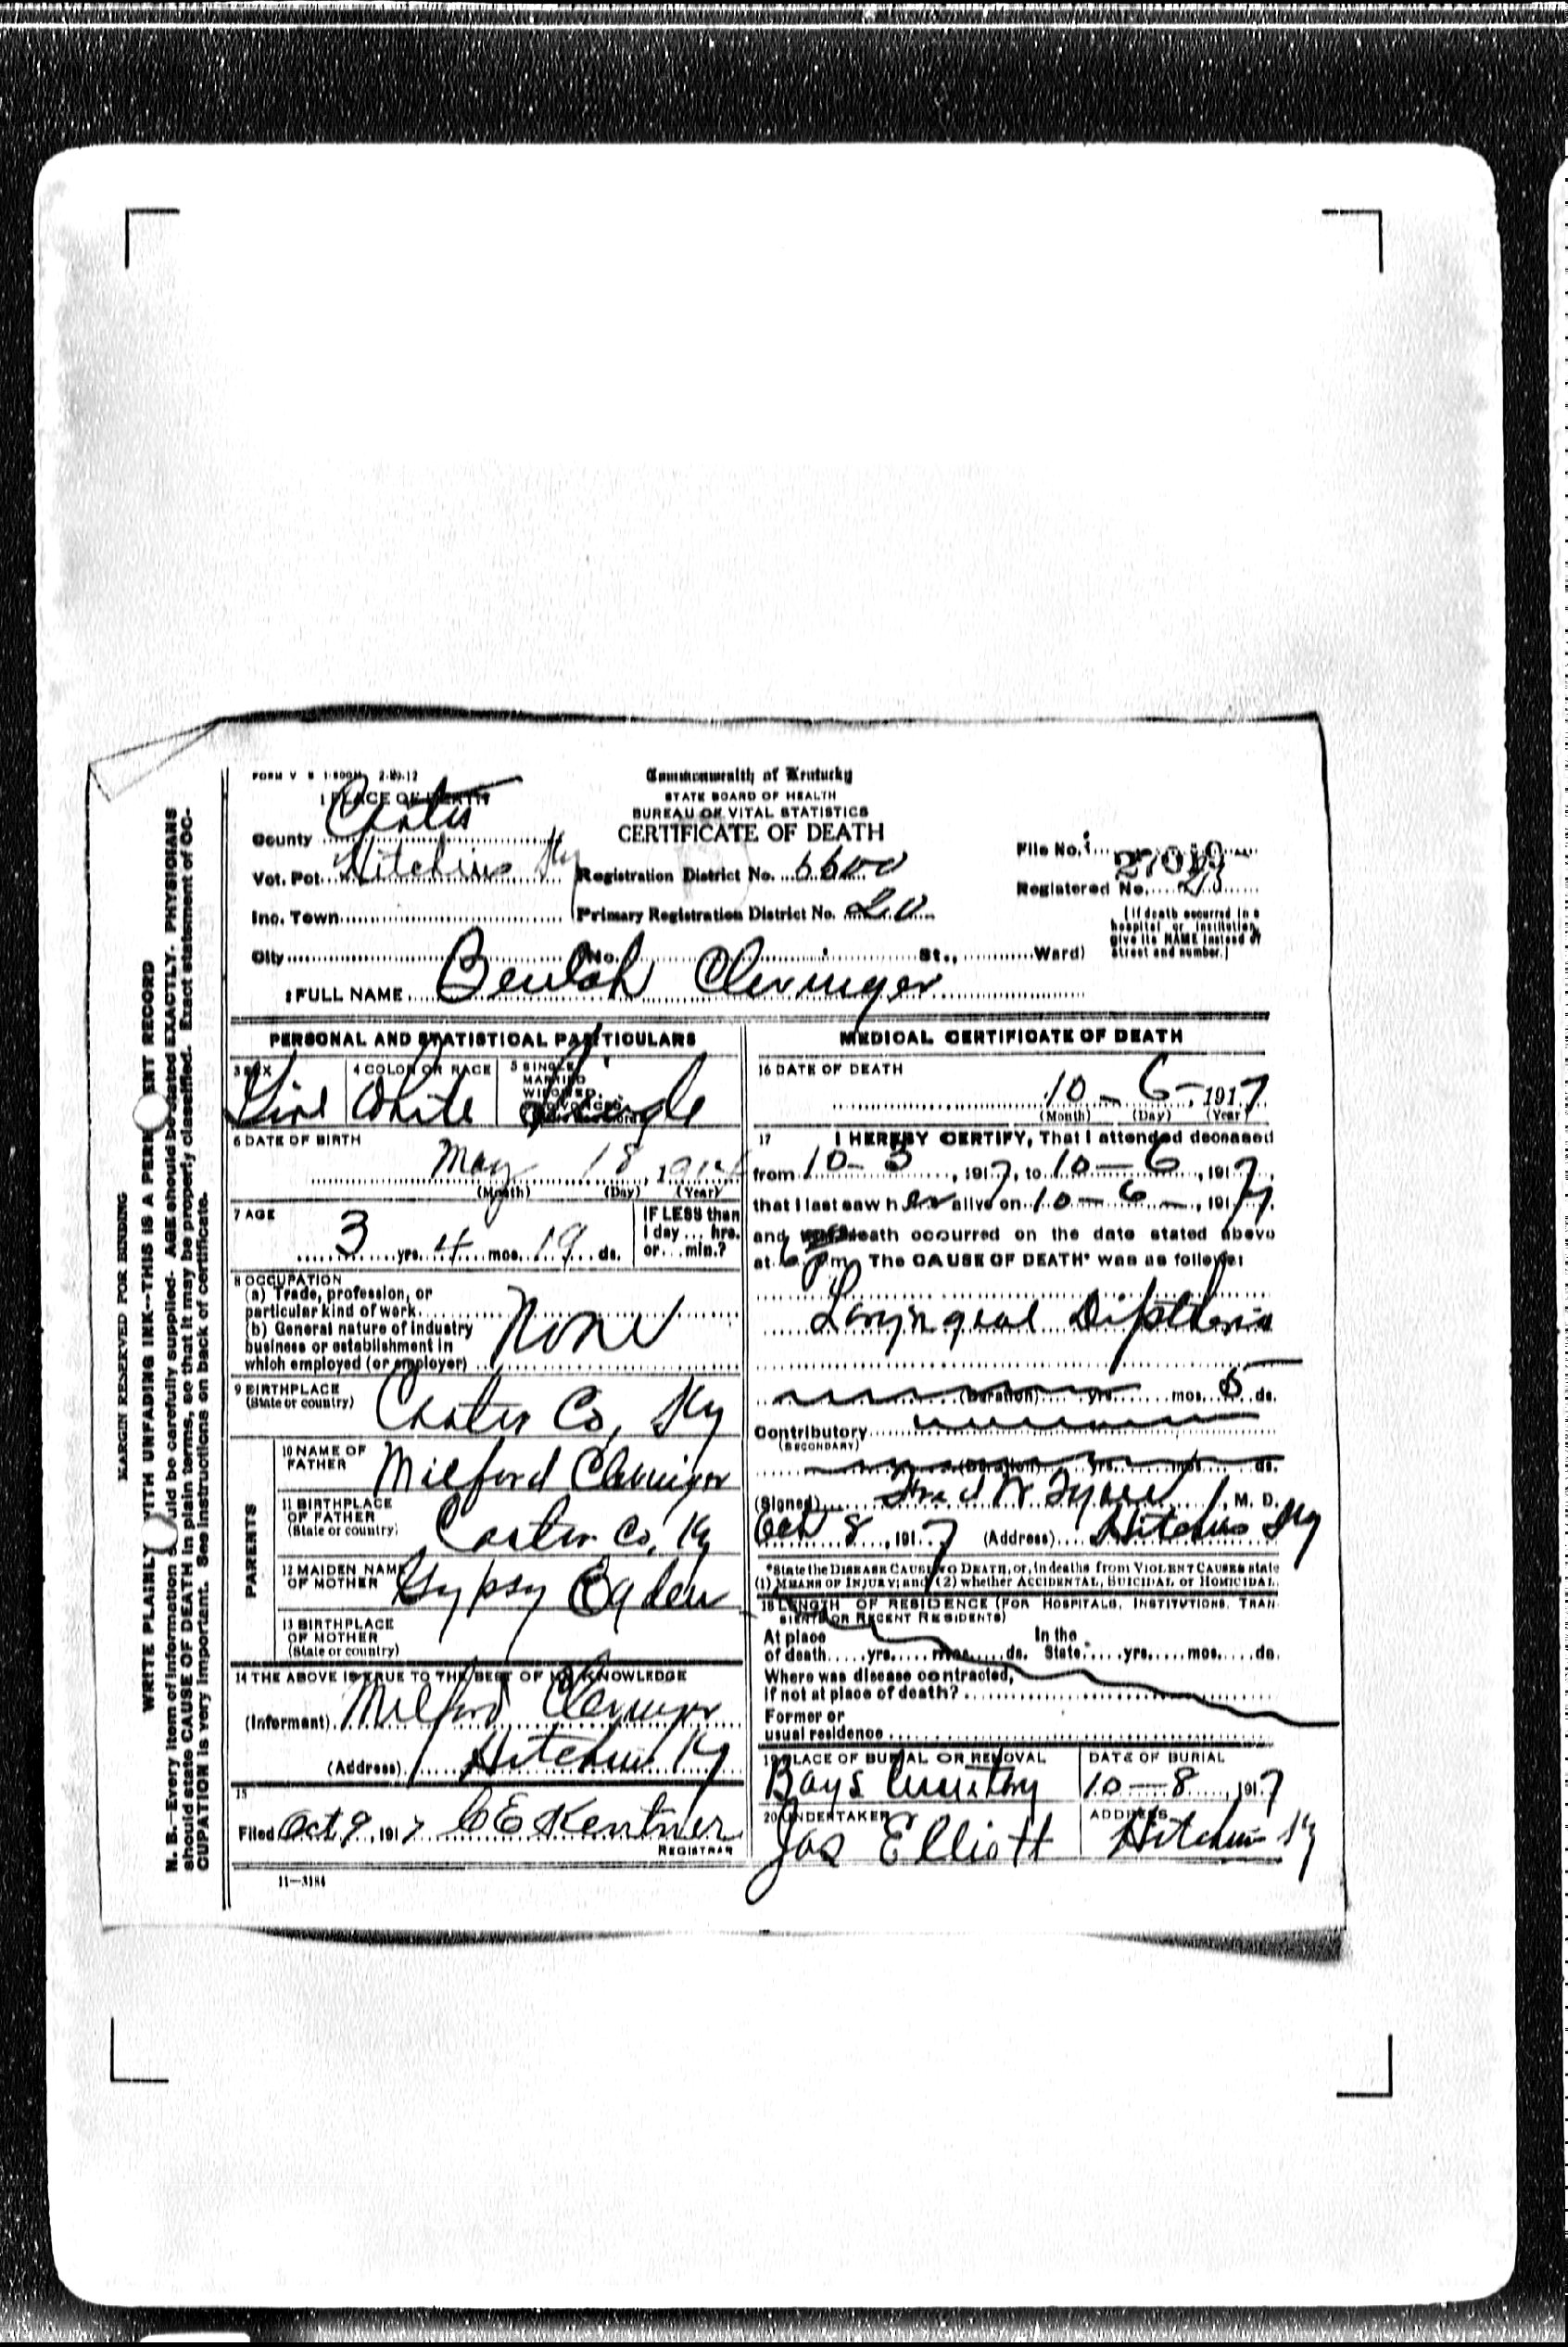 FORM V S 1-500M 2-20-12
Commonwealth of Kentucky
STATE BOARD OF HEALTH
BUREAU OF VITAL STATISTICS
CERTIFICATE OF DEATH
1 PLACE OF DEATH
County Carter
Vot. Pct. Hitchins Ky
Inc. Town
City
Registration District No. 6600
Primary Registration District No. 20
No. St., Ward)
File No.
Registered No.
(If death occurred in a
hospital or institution,
give its NAME instead of
street and number.)
2 FULL NAME Beulah Clevinger
PERSONAL AND STATISTICAL PARTICULARS
3 SEX
Girl
4 COLOR OR RACE
White
5 SINGLE
MARRIED
WIDOWED
OR DIVORCED
Single
6 DATE OF BIRTH
May 18, 1914
(Month) (Day) (Year)
7 AGE
3 yrs. 4 mos. 19 ds.
IF LESS than
1 day ... hrs.
or ... min.?
8 OCCUPATION
(a) Trade, profession, or
particular kind of work
(b) General nature of industry
business or establishment in
which employed (or employer)
None
9 BIRTHPLACE
(State or country)
Carter Co, Ky
PARENTS
10 NAME OF
FATHER
Milford Clevinger
11 BIRTHPLACE
OF FATHER
(State or country)
Carter Co, Ky
12 MAIDEN NAME
OF MOTHER
Gypsy Ogden
13 BIRTHPLACE
OF MOTHER
(State or country)
14 THE ABOVE IS TRUE TO THE BEST OF MY KNOWLEDGE
(Informant) Milford Clevinger
(Address) Hitchins Ky
15
Filed Oct 9, 1917 C E Kentner
REGISTRAR
11-3184
MEDICAL CERTIFICATE OF DEATH
16 DATE OF DEATH
10 - 6 -, 1917
(Month) (Day) (Year)
17 I HEREBY CERTIFY, That I attended deceased
from 10-3, 1917, to 10-6, 1917,
that I last saw her alive on 10-6-, 1917,
and death occurred on the date stated above
at 6 pm. The CAUSE OF DEATH* was as follows:
Laryngeal Diptheria
(Duration) yrs. mos. 5 ds.
Contributory
(SECONDARY)
(Duration) yrs. mos. ds.
(Signed) W M. D.
Oct 8, 1917 (Address) Hitchins Ky
*State the DISEASE CAUSING DEATH, or, in deaths from VIOLENT CAUSES state
(1) MEANS OF INJURY; and (2) whether ACCIDENTAL, SUICIDAL or HOMICIDAL.
18 LENGTH OF RESIDENCE (FOR HOSPITALS, INSTITUTIONS, TRAN
SIENTS OR RECENT RESIDENTS)
At place
of death yrs. mos. ds.
In the
State yrs. mos. ds.
Where was disease contracted,
if not at place of death?
Former or
usual residence
19 PLACE OF BURIAL OR REMOVAL
Bays Cemetery
DATE OF BURIAL
10-8, 1917
20 UNDERTAKER
Jas Elliott
ADDRESS
Hitchins Ky
MARGIN RESERVED FOR BINDING
WRITE PLAINLY WITH UNFADING INK--THIS IS A PERMANENT RECORD
N. B.--Every item of information should be carefully supplied. AGE should be stated EXACTLY. PHYSICIANS
should state CAUSE OF DEATH in plain terms, so that it may be properly classified. Exact statement of OC-
CUPATION is very important. See instructions on back of certificate.